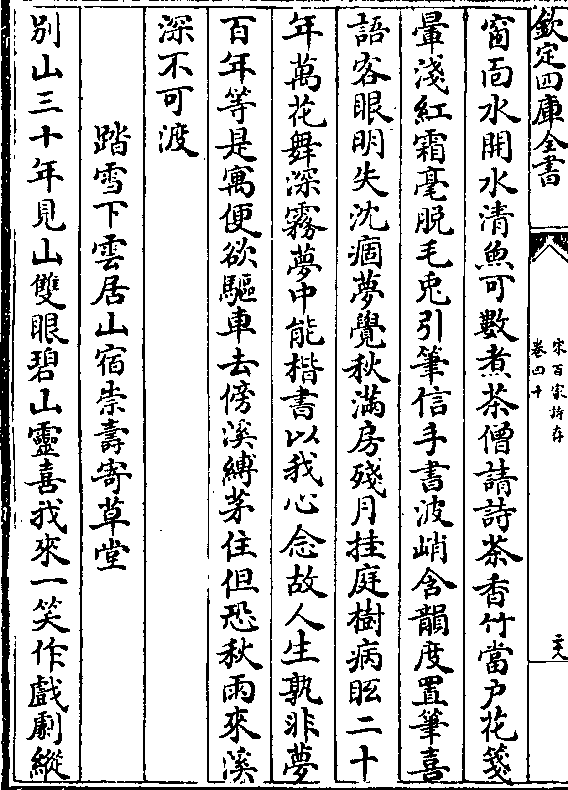 欽定四庫全書
宋百家詩存
卷四十
二六
窗面水開水清魚可數煮茶僧請詩茶香竹當户花箋
暈淺紅霜毫脱毛兎引筆信手書波峭含韻度置筆喜
語客眼明失沈痼夢覺秋滿房殘月挂庭樹病眩二十
年萬花舞深霧夢中能楷書以我心念故人生孰非夢
百年等是寓便欲驅車去傍溪縛茅住但恐秋雨來溪
深不可渡
踏雪下雲居山宿崇壽寄草堂
别山三十年見山雙眼碧山靈喜我來一笑作戲劇縱